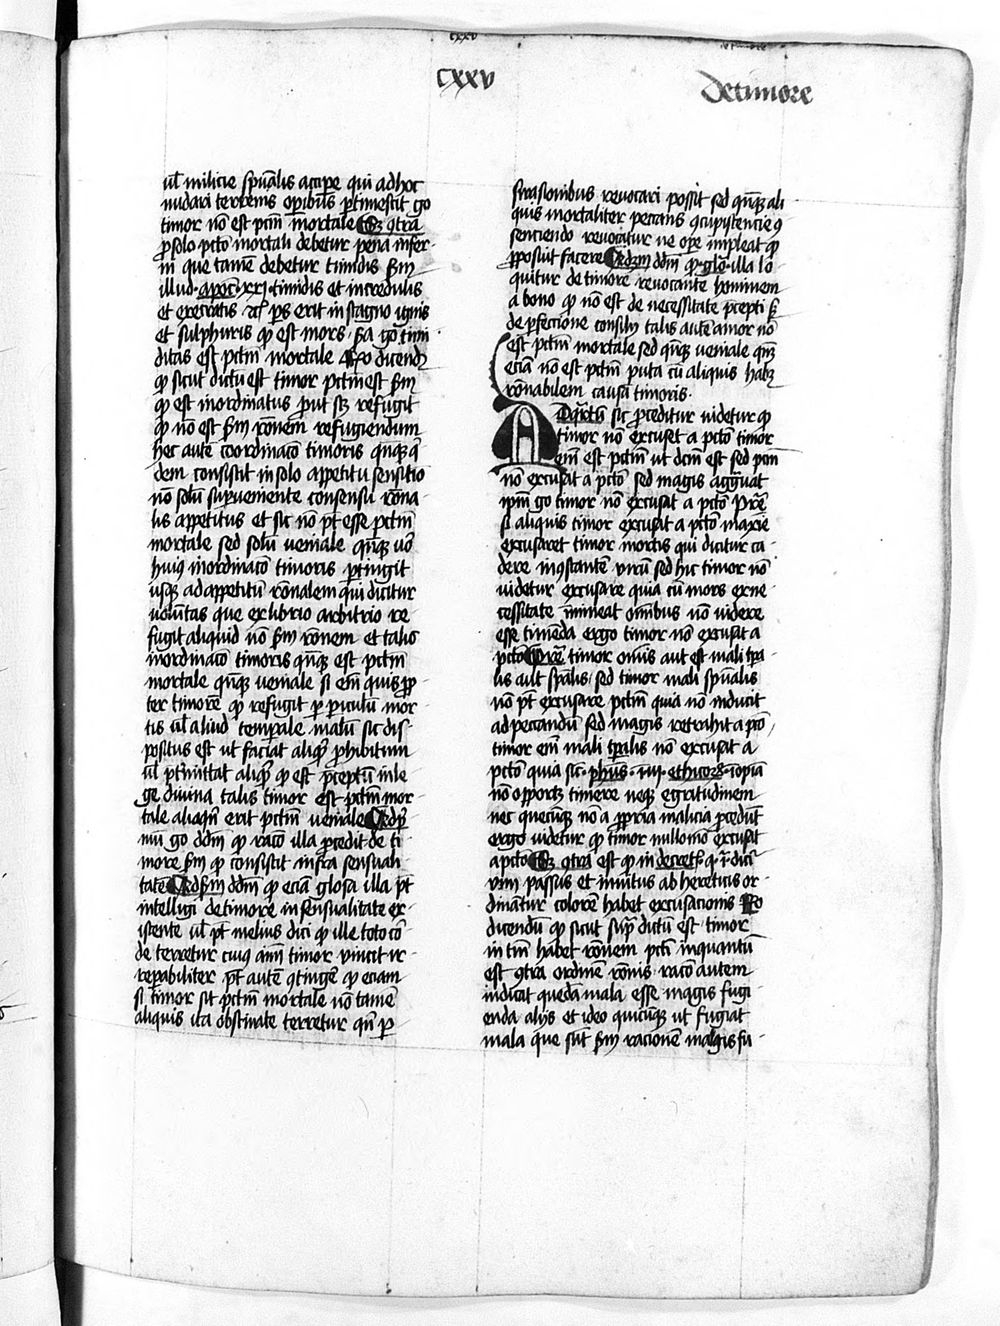 cxxv
De timore
ul̄ milicie sp̄ualis accipe qui ad hoc
nudari terrenis op̄ibus p̄timescit g̊
timor nō est pctm̄ mortale Sz 9tra
p̱ solo pctō mortali debetur pena infer-
ni que tamē debetur timidis scd̄m
illud apoc̄ xxj timidis et incredulis
et execratis ⁊c̄ ps erit in stagno ignis
et sulphuris qd̄ est mors sc̄da g̊ timi
ditas est pctm̄ mortale Rn̄o dicendū
qd̄ sicut dictū est timor pctm̄ est scd̄m
qd̄ est inordinatus prout scz refugit
qd̄ nō est scd̄m rōnem refugiendum
hec autē inordinacō timoris qn̄qz q̇
dem consistit in solo appetitu sensitiō
nō solū supueniente consensu rōna-
lis appetitus et sic nō pt̄ esse pctm̄
mortale sed solū veniale qn̄qz uō
huiꝰ inordinacō timoris p̱tingit
usqz ad appetitū rōnalem qui dicitur
volūtas que ex libero arbitrio re-
fugit aliquid nō scd̄m rōnem et talis
inordinacō timoris qn̄qz est pctm̄
mortale qn̄qz veniale si em̄ quis pp̱
ter timorē qo refugit p̱ p̱iculū mor-
tis ul̄ aliud temp̱ale malū sic dis-
positus est ut faciat aliqd̄ p̱hibitum
ul̄ p̄t̄mittat aliqd̄ qd̄ est p̄ceptū in le
ge diuina talis timor est pctm̄ mor-
tale alioqn̄ erit pctm̄ veniale Ad p̱
mū g̊ dd̄m qd̄ racō illa p̱cedit de ti-
more scd̄m qd̄ consistit infra sensuali-
tatē Ad scd̄m dd̄m qd̄ eciā glosa illa pt̄
intelligi de timore in sensualitate ex-
istente ul̄ pt̄ melius dici qd̄ ille toto cor-
de terretur cuiꝰ aīm timor vincit ir-
repabiliter pt̄ autē 9tinge qd̄ eciam
si timor sit pctm̄ mortale nō tamē
aliquis ita obstinate terretur qn̄ p̱
suasionibus reuocari possit sed qn̄qz ali
quis mortaliter peccans 9cupiscencie 9
senciendo reuocatur ne ope impleat qd̄
pp̱osuit facere Ad 3m dd̄m qd̄ glō illa lo
quitur de timore reuocante hominem
a bono qd̄ nō est de necessitate p̄cepti s
de p̱fectione consilij talis autē timor nō
est pctm̄ mortale sed qn̄qz veniale qn̄qz
eciā nō est pctm̄ puta cū aliquis habz
rōnabilem causā timoris
Ad q̇rtū sic p̱ceditur videtur qd̄
timor nō excuset a pctō timor
em̄ est pctm̄ ut dcm̄ est sed pctm̄
nō excusat a pctō sed magis aggrauat
ipm̄ g̊ timor nō excusat a pctō Pretē
si aliquis timor excusat a pctō maxie
excusaret timor mortis qui dicitur ca-
dere in 9stantē virū sed hic timor nō
videtur excusare quia cū mors ex ne-
cessitate immineat omībus nō videtur
esse timēda ergo timor nō excusat a
pctō Pretē timor omīs aut est mali tp̱a
lis aut sp̄ualis sed timor mali sp̄ualis
nō pt̄ excusare pctm̄ quia nō inducit
ad peccandū sed magis retrahit a pctō
timor em̄ mali tp̱alis nō excusat a
pctō quia sic phūs iij ethicorꝫ inopiā
nō oportz timere neqz egritudinem
nec quecūqz nō a pp̱ria malicia p̱cedūt
ergo videtur qd̄ timor nullomō excusat
a pctō Sz 9tra est qd̄ in decret̄ q j dicit̄
vim passus et inuitus ab hereticis or-
dinatur colorē habet excusacionis Rn̄o
dicendū qd̄ sicut sup̱ dictū est timor
in tm̄ habet rōnem pcti inquantū
est 9tra ordinē rōnis racō autem
iudicat quedā mala esse magis fugi-
enda alijs et ideo quicūqz ut fugiat
mala que sūt scd̄m racionē magis fu-